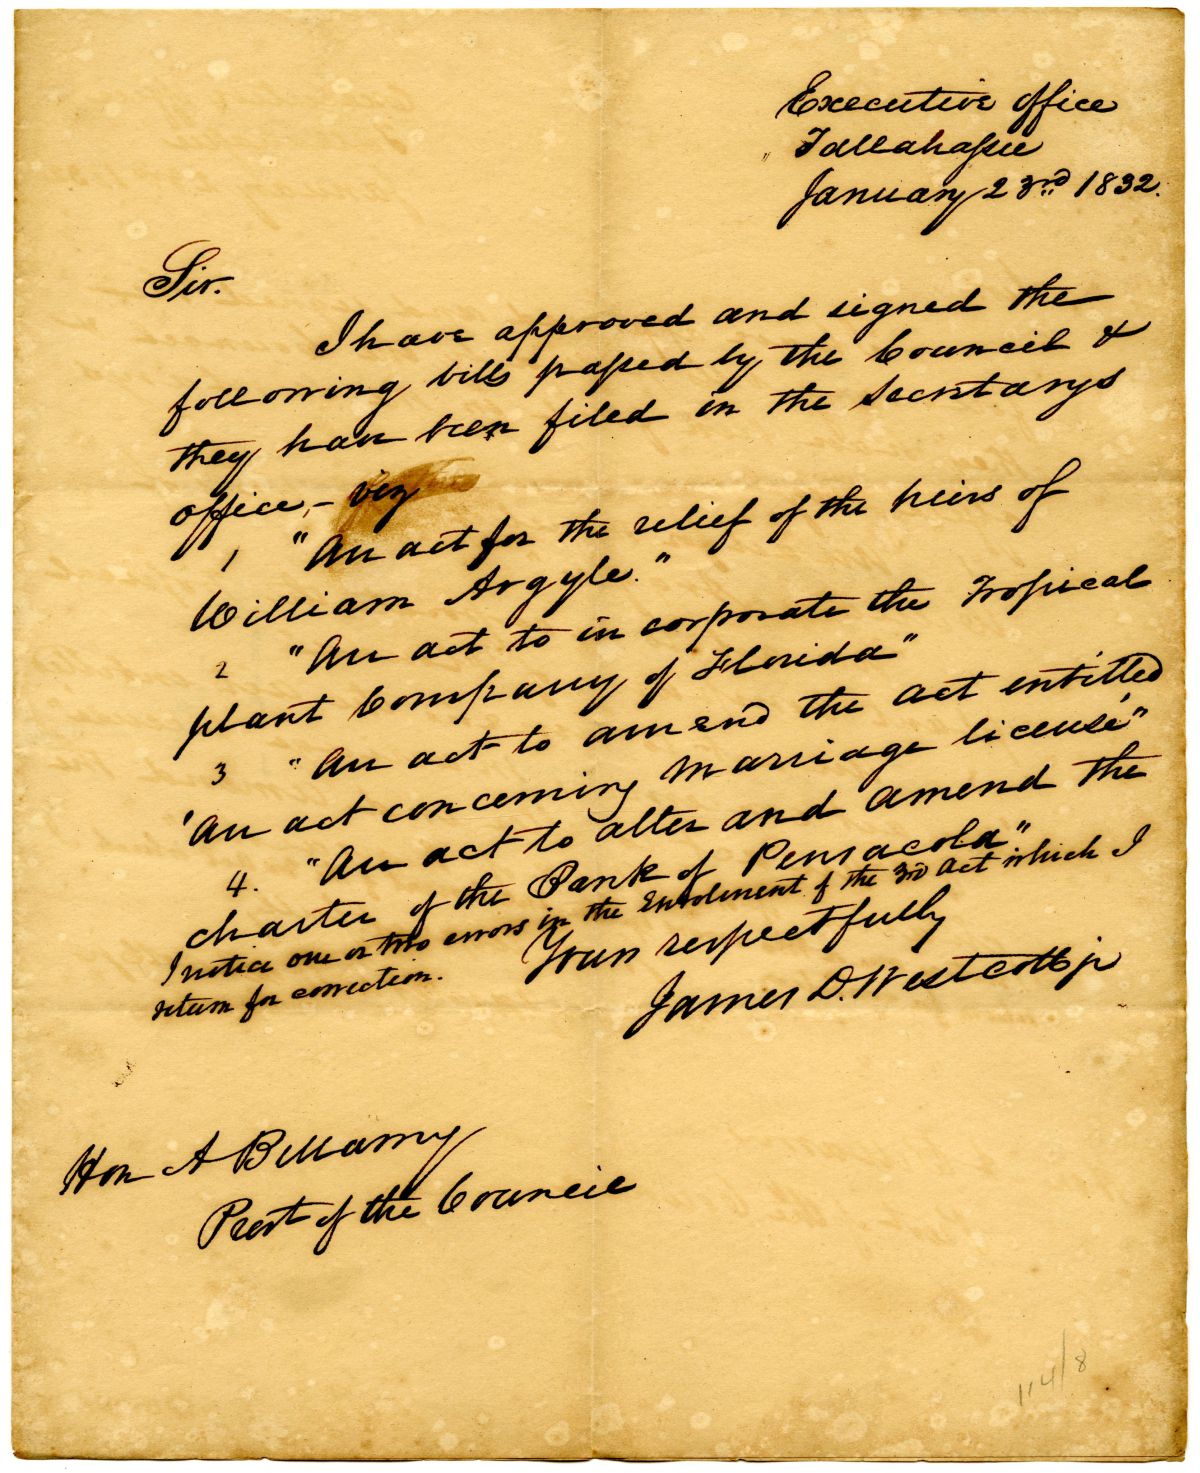 Executive office
Tallahassee
January 23rd 1832.
Sir.
I have approved and signed the
following bills passed by the Council &
they have been filed in the Secretarys
office, - viz
1 "An act for the relief of the heirs of
William Argyle."
2 "An act to in corporate the Tropical
plant Company of Florida"
3 "An act to amend the act entitled
'An act concerning Marriage license'"
4. "An act to alter and amend the
charter of the Bank of Pensacola"
I notice one or two errors in the Enrolment of the 3rd Act which I
return for correction.
Your respectfully
James D. Westcott jr
Hon A Bellamy
Prest of the Council
114/8